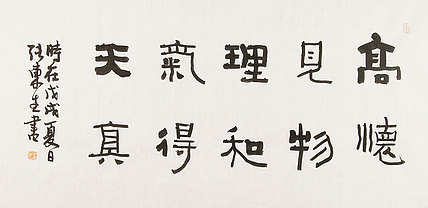 高懷
見物
理和
氣得
天真
時在戊戌夏日
張東生書